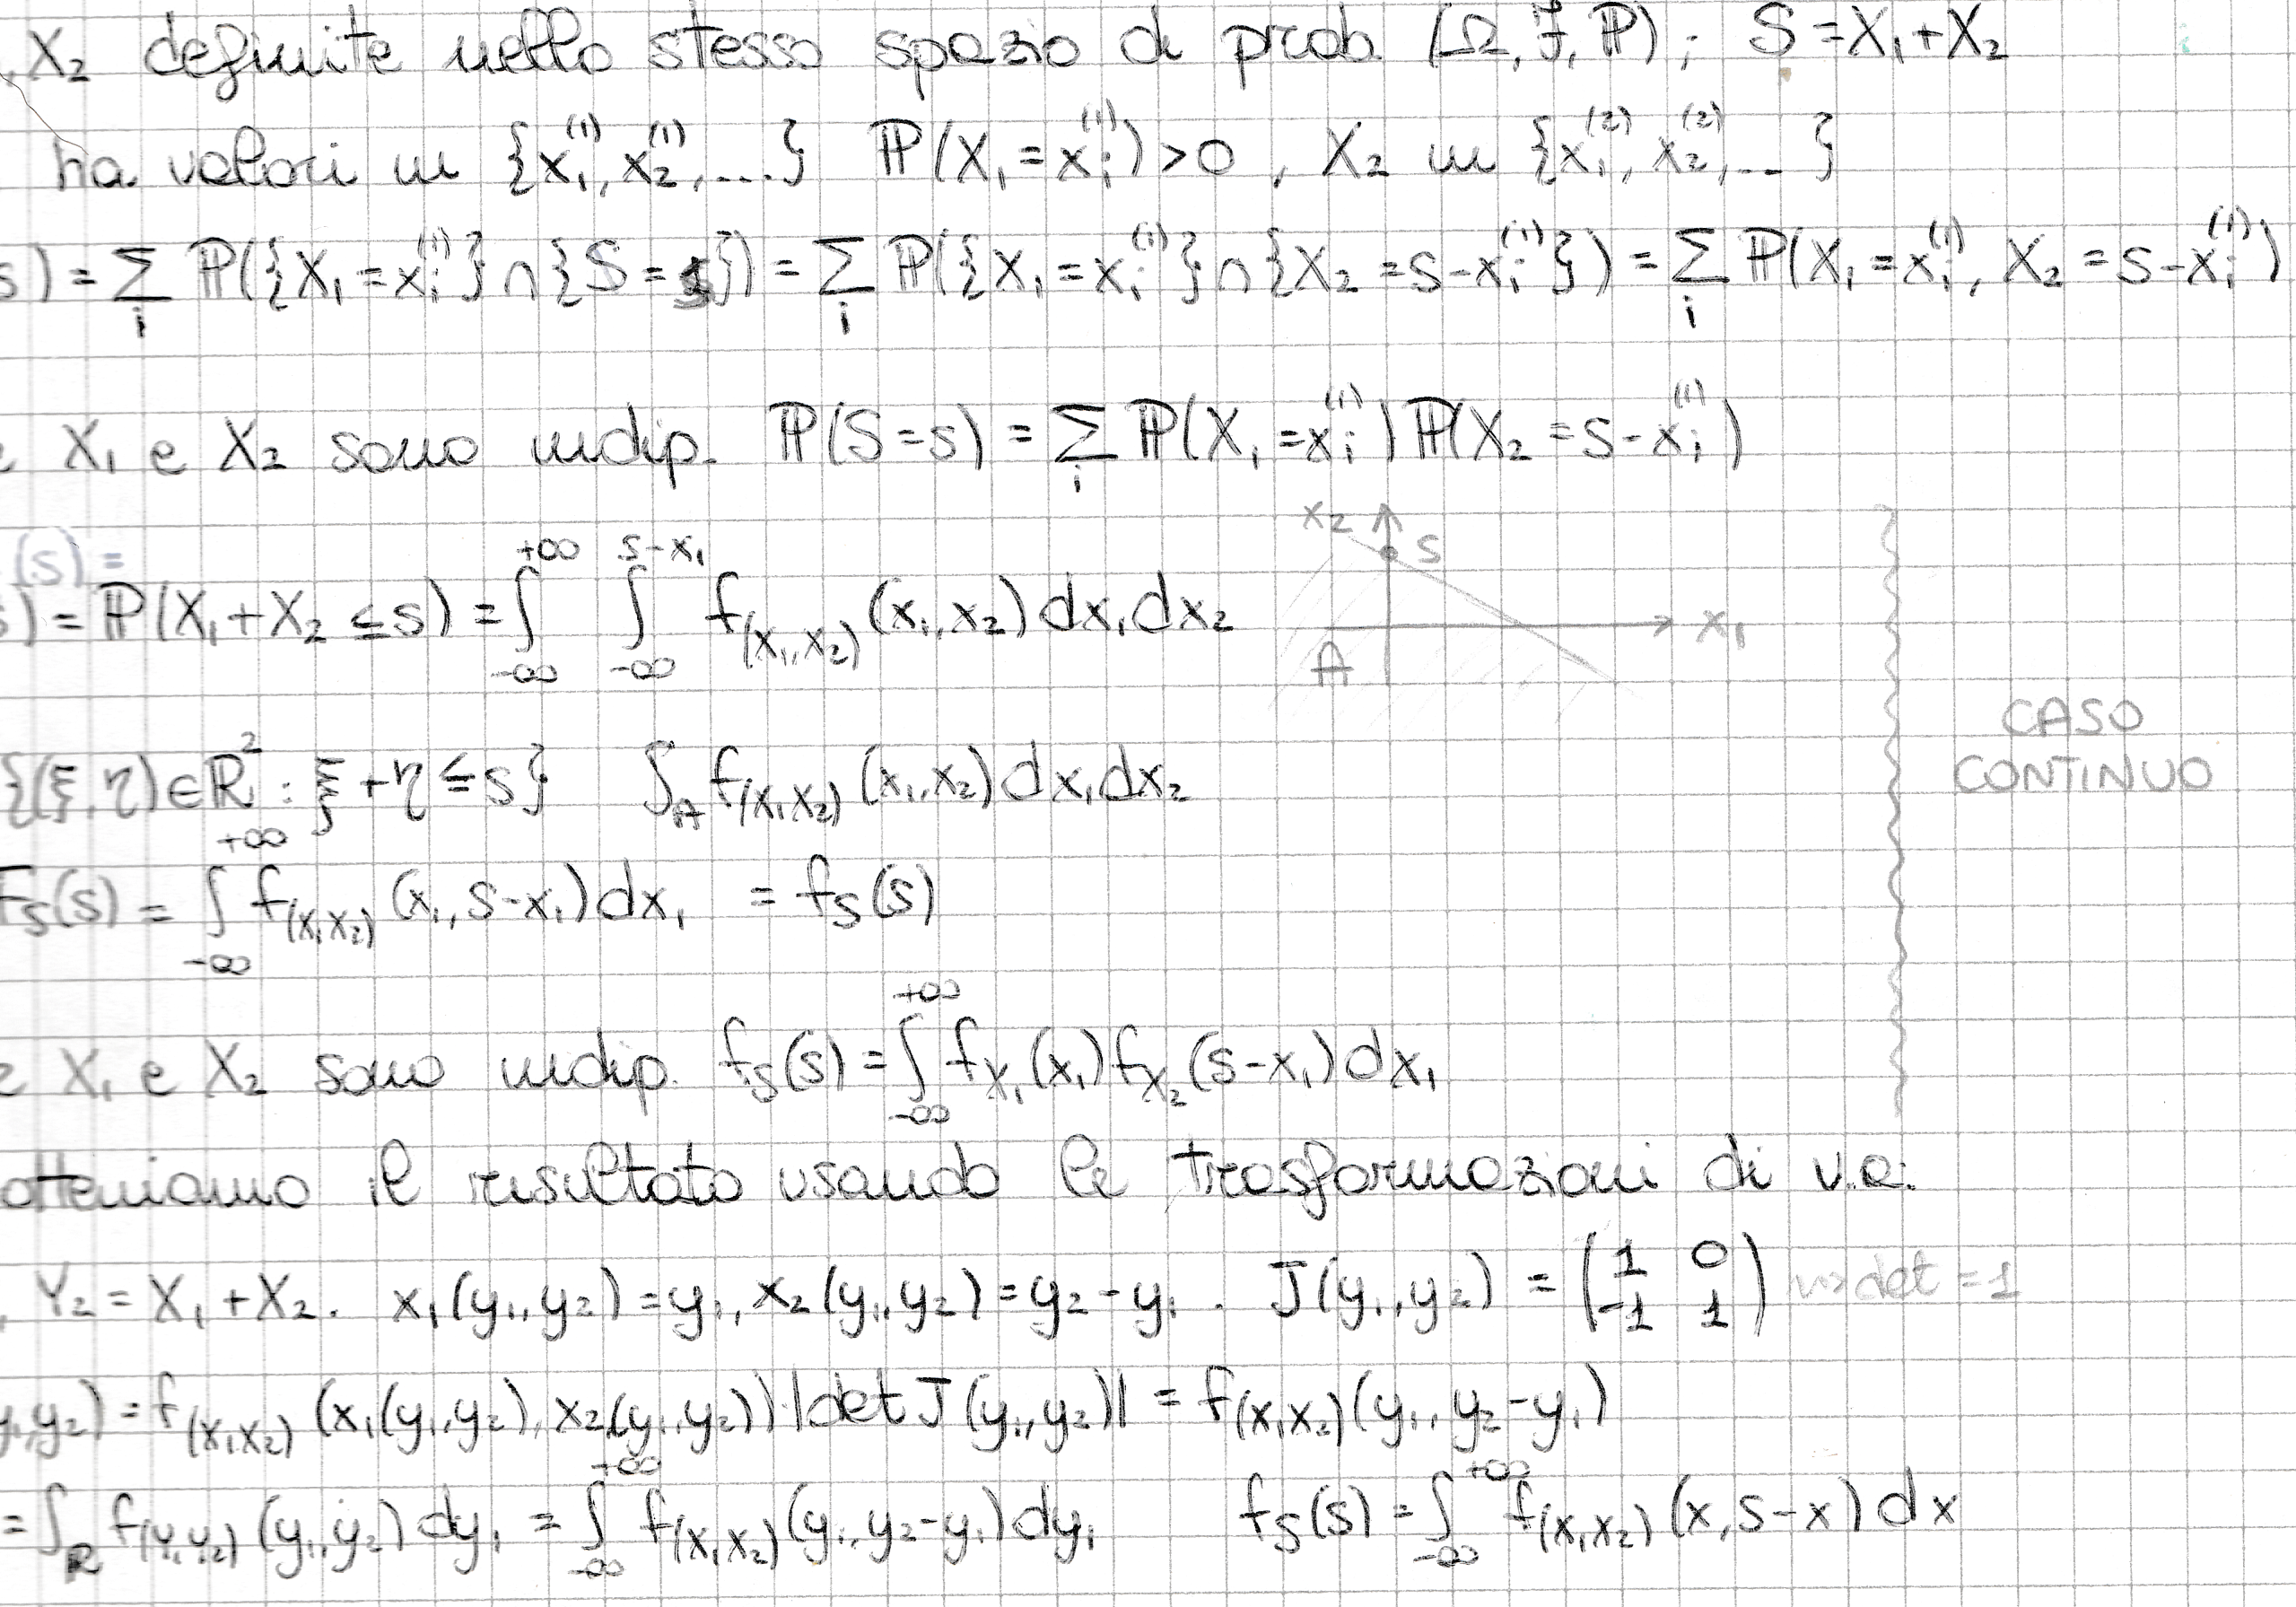 , X₂ definite nello stesso spazio di prob. (Ω, F, ℙ); S = X₁ + X₂
ha valori in {x₁⁽¹⁾, x₂⁽¹⁾, ...} ℙ(X₁ = xᵢ⁽¹⁾) > 0, X₂ in {x₁⁽²⁾, x₂⁽²⁾, ...}
s) = ∑ᵢ ℙ({X₁ = xᵢ⁽¹⁾} ∩ {S = s}) = ∑ᵢ ℙ({X₁ = xᵢ⁽¹⁾} ∩ {X₂ = s - xᵢ⁽¹⁾}) = ∑ᵢ ℙ(X₁ = xᵢ⁽¹⁾, X₂ = s - xᵢ⁽¹⁾)
e X₁ e X₂ sono indip. ℙ(S = s) = ∑ᵢ ℙ(X₁ = xᵢ⁽¹⁾) ℙ(X₂ = s - xᵢ⁽¹⁾)
x₂ s
(s) =
s) = ℙ(X₁ + X₂ ≤ s) = ∫_{-∞}^{+∞} ∫_{-∞}^{s-x₁} f_{(X₁,X₂)}(x₁, x₂) dx₁ dx₂
x₁
A
CASO
CONTINUO
{(ξ, η) ∈ ℝ² : ξ + η ≤ s} ∫_A f_{(X₁,X₂)}(x₁, x₂) dx₁ dx₂
F_S(s) = ∫_{-∞}^{+∞} f_{(X₁,X₂)}(x₁, s - x₁) dx₁ = f_S(s)
e X₁ e X₂ sono indip. f_S(s) = ∫_{-∞}^{+∞} f_{X₁}(x₁) f_{X₂}(s - x₁) dx₁
otteniamo il risultato usando le trasformazioni di v.a.
, Y₂ = X₁ + X₂. x₁(y₁, y₂) = y₁, x₂(y₁, y₂) = y₂ - y₁. J(y₁, y₂) = (1 0; -1 1) ⇝ det = 1
y₁, y₂) = f_{(X₁,X₂)}(x₁(y₁, y₂), x₂(y₁, y₂)) |det J(y₁, y₂)| = f_{(X₁,X₂)}(y₁, y₂ - y₁)
= ∫_ℝ f_{(Y₁,Y₂)}(y₁, y₂) dy₁ = ∫_{-∞}^{+∞} f_{(X₁,X₂)}(y₁, y₂ - y₁) dy₁ f_S(s) = ∫_{-∞}^{+∞} f_{(X₁,X₂)}(x, s - x) dx